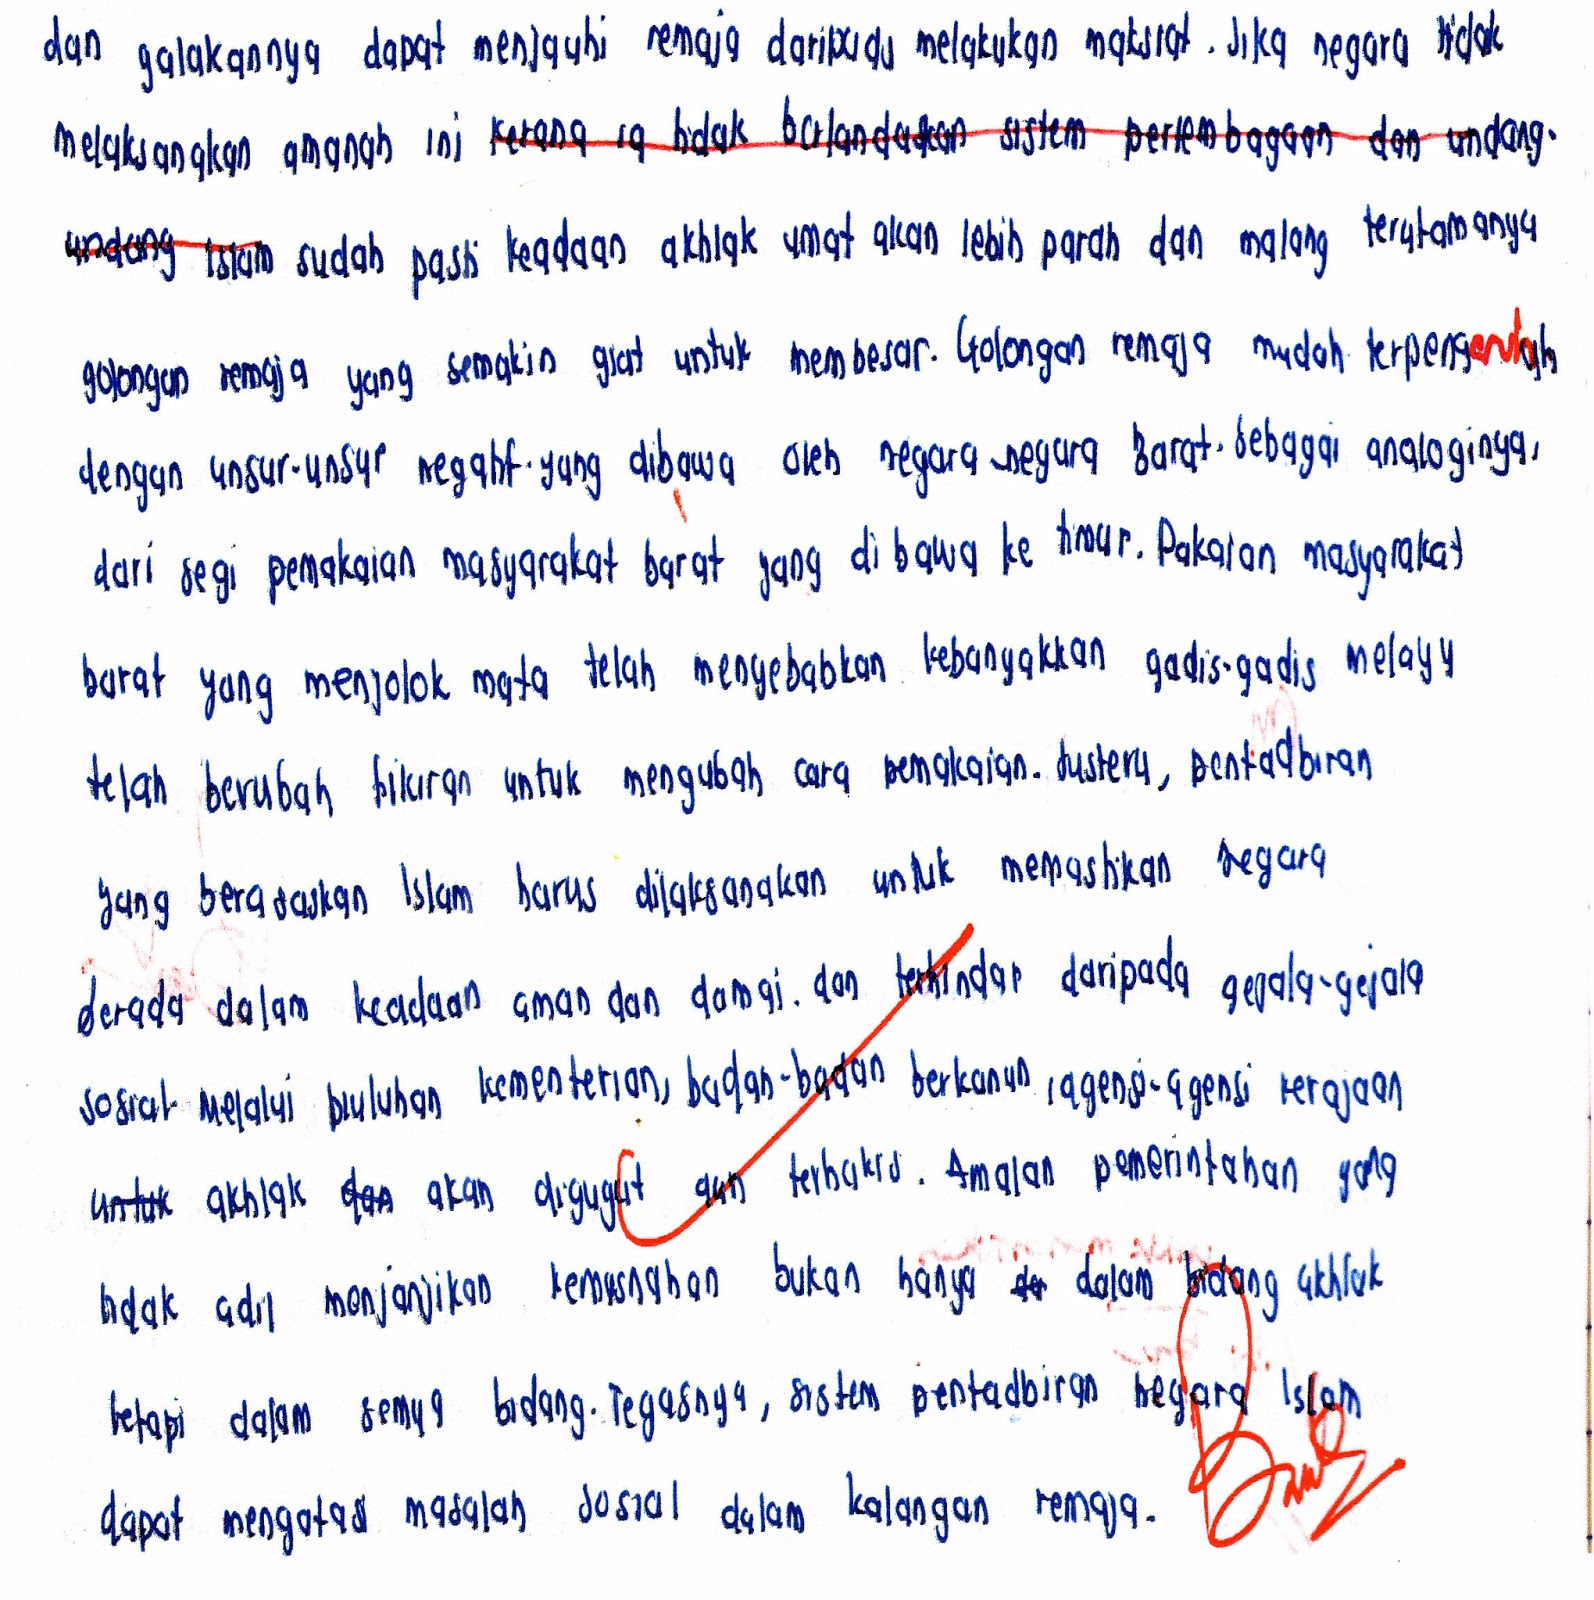 dan galakannya dapat menjauhi remaja daripada melakukan maksiat. Jika negara tidak
melaksanakan amanah ini kerana ia tidak berlandaskan sistem perlembagaan dan undang-
undang Islam sudah pasti keadaan akhlak umat akan lebih parah dan malang terutamanya
golongan remaja yang semakin giat untuk membesar. Golongan remaja mudah terpengaruh
dengan unsur-unsur negatif yang dibawa oleh negara-negara Barat. Sebagai analoginya,
dari segi pemakaian masyarakat barat yang di bawa ke timur. Pakaian masyarakat
barat yang menjolok mata telah menyebabkan kebanyakkan gadis-gadis melayu
telah berubah fikiran untuk mengubah cara pemakaian. Justeru, pentadbiran
yang berasaskan Islam harus dilaksanakan untuk memastikan negara
berada dalam keadaan aman dan damai. dan terhindar daripada gejala-gejala
sosial melalui buluhan kementerian, badan-badan berkanun, agensi-agensi kerajaan
untuk akhlak dan akan digugat dan terhakis. Amalan pemerintahan yang
tidak adil menjanjikan kemusnahan bukan hanya dalam bidang akhlak
tetapi dalam semua bidang. Tegasnya, sistem pentadbiran negara Islam
dapat mengatasi masalah sosial dalam kalangan remaja.